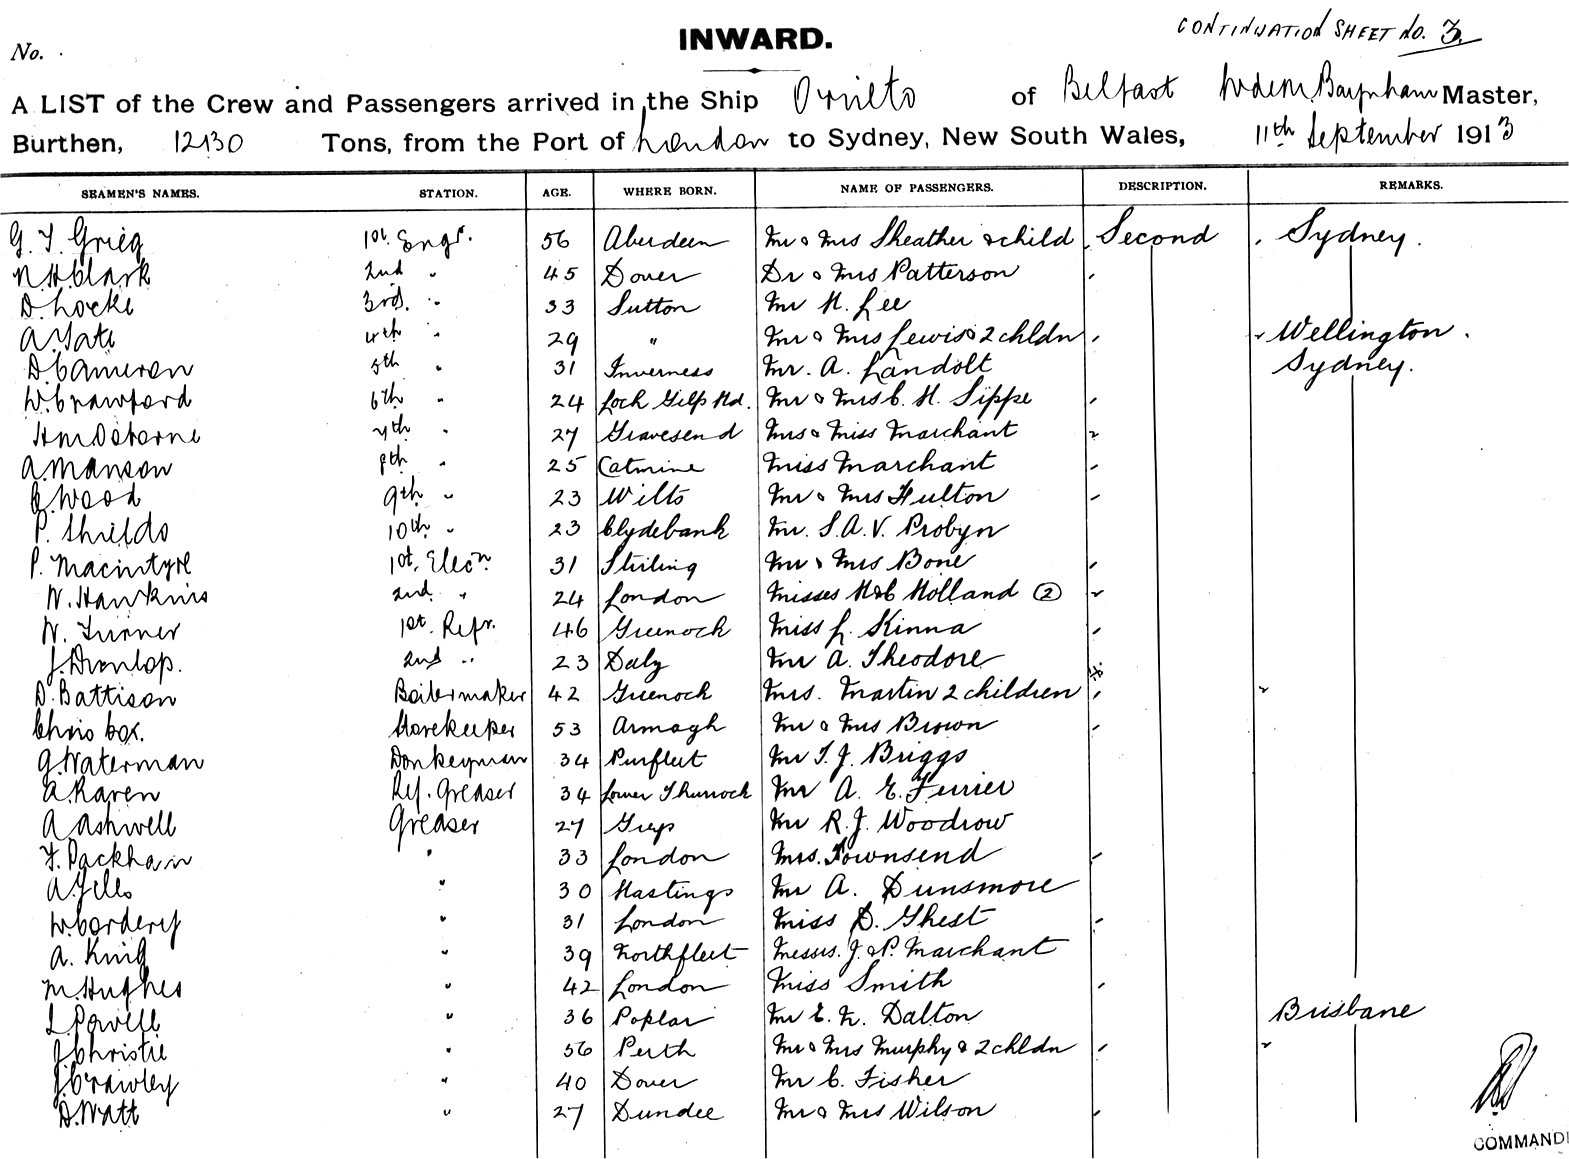 CONTINUATION SHEET No. 3.
No.
INWARD.
A LIST of the Crew and Passengers arrived in the Ship Orvieto of Belfast Master,
Burthen, 12130 Tons, from the Port of London to Sydney, New South Wales, 11th September 1913
SEAMEN'S NAMES. STATION. AGE. WHERE BORN. NAME OF PASSENGERS. DESCRIPTION. REMARKS.
G. T. Grieg 1st. Engr. 56 Aberdeen Mr & Mrs Sheather & child Second Sydney.
N. H. Clark 2nd " 45 Dover Dr & Mrs Patterson
D. Locke 3rd. " 33 Sutton Mr H. Lee
A. Tate 4th " 29 " Mr & Mrs Lewis & 2 chldn Wellington.
D. Cameron 5th " 31 Inverness Mr. A. Landolt Sydney.
W. Crawford 6th " 24 Loch Gilp Hd. Mr & Mrs C. H. Sippe
H M Osborne 7th " 27 Gravesend Mrs & Miss Marchant
A. Manson 8th " 25 Catrine Miss Marchant
Wood 9th " 23 Wilts Mr & Mrs Fulton
P. Shields 10th " 23 Clydebank Mr. S. A. V. Probyn
P. Macintyre 1st. Elecn. 31 Stirling Mr & Mrs Bone
W. Hawkins 2nd. " 24 London Misses H & C Holland 2
W. Turner 1st. Refr. 46 Greenock Miss L. Kinna
J. Dunlop. 2nd " 23 Daly Mr A. Theodore
D. Battison Boilermaker 42 Greenock Mrs. Martin 2 children
Chris Cox. Storekeeper 53 Armagh Mr & Mrs Brown
G. Waterman Donkeyman 34 Purfleet Mr T. J. Briggs
A. Raven Ref. Greaser 34 Lower Thurrock Mr A. E. Ferrier
A Ashwell Greaser 27 Grays Mr R. J. Woodrow
F. Packham " 33 London Mrs. Townsend
A. " 30 Hastings Mr A. Dunsmore
W. Cordery " 31 London Miss D. Ghest
A. King " 39 Northfleet Messrs. J. & P. Marchant
M. Hughes " 42 London Miss Smith
L. Powell " 36 Poplar Mr E. N. Dalton Brisbane
J. Christie " 56 Perth Mr & Mrs Murphy & 2 chldn
J. Crawley " 40 Dover Mr C. Fisher
D. Watt " 27 Dundee Mr & Mrs Wilson
COMMAND